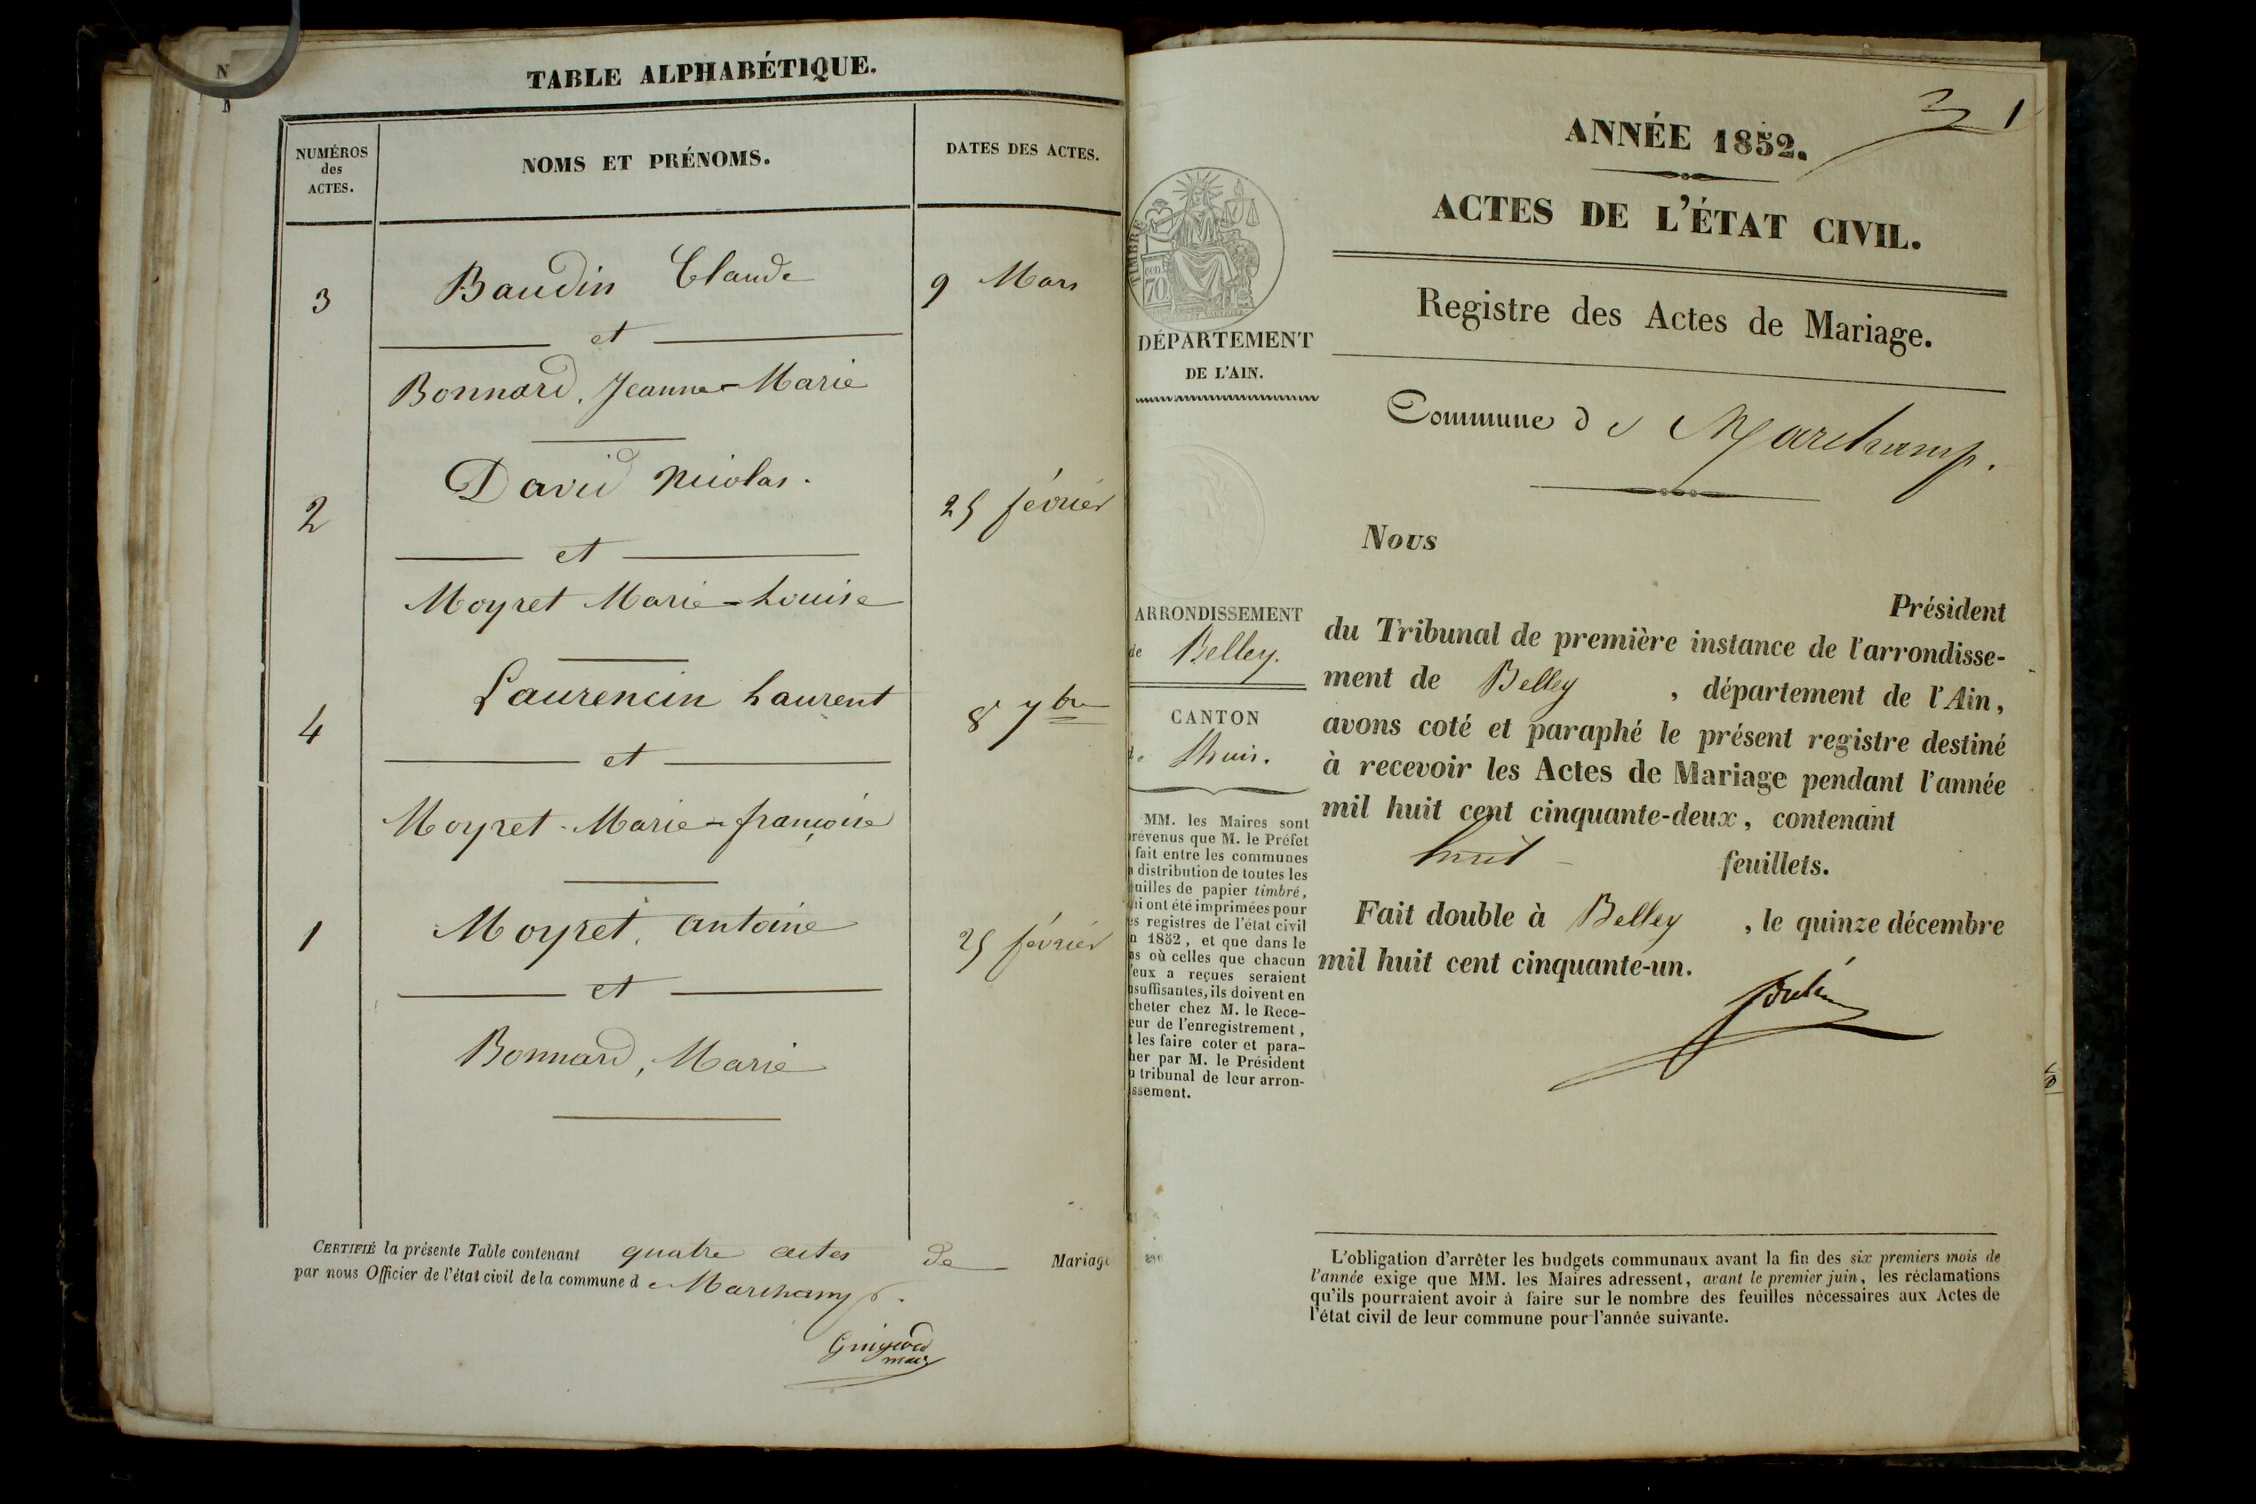 TABLE ALPHABÉTIQUE.
NUMÉROS
des
ACTES.
NOMS ET PRÉNOMS.
DATES DES ACTES.
3
Baudin Claude
9 Mars
et
Bonnard, Jeanne-Marie
David Nicolas.
2
25 février
et
Moyret Marie-Louise
Laurencin Laurent
4
8 7bre
et
Moyret-Marie-françoise
Moyret, antoine
1
25 février
et
Bonnard, Marie
CERTIFIÉ la présente Table contenant quatre actes de Mariage
par nous Officier de l'état civil de la commune de Marchamp.
3 1
ANNÉE 1852.
ACTES DE L'ÉTAT CIVIL.
Registre des Actes de Mariage.
Commune de Marchamp.
TIMBRE
70
DÉPARTEMENT
DE L'AIN.
ARRONDISSEMENT
de Belley.
CANTON
Lhuis.
MM. les Maires sont
révenus que M. le Préfet
fait entre les communes
distribution de toutes les
uilles de papier timbré,
ui ont été imprimées pour
es registres de l'état civil
n 1852, et que dans le
as où celles que chacun
'eux a reçues seraient
nsuffisantes, ils doivent en
cheter chez M. le Rece-
eur de l'enregistrement,
t les faire coter et para-
her par M. le Président
u tribunal de leur arron-
issement.
Nous
Président
du Tribunal de première instance de l'arrondisse-
ment de Belley, département de l'Ain,
avons coté et paraphé le présent registre destiné
à recevoir les Actes de Mariage pendant l'année
mil huit cent cinquante-deux, contenant
huit feuillets.
Fait double à Belley, le quinze décembre
mil huit cent cinquante-un.
L'obligation d'arrêter les budgets communaux avant la fin des six premiers mois de
l'année exige que MM. les Maires adressent, avant le premier juin, les réclamations
qu'ils pourraient avoir à faire sur le nombre des feuilles nécessaires aux Actes de
l'état civil de leur commune pour l'année suivante.